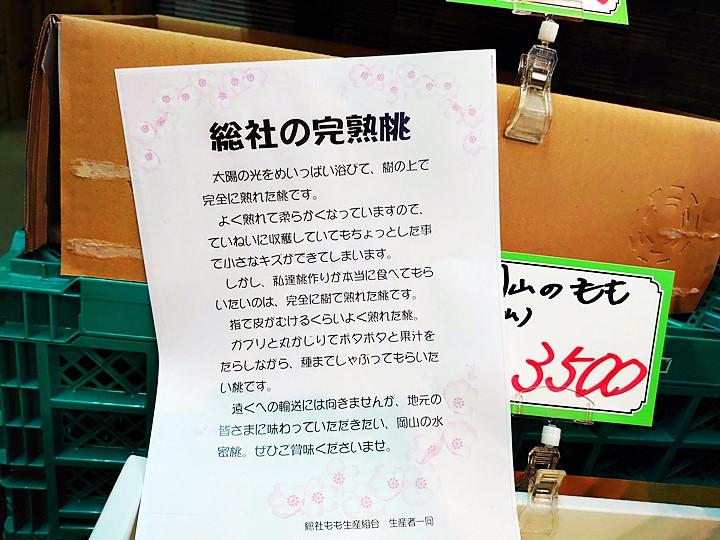 総社の完熟桃
太陽の光をめいっぱい浴びて、樹の上で
完全に熟れた桃です。
よく熟れて柔らかくなっていますので、
ていねいに収穫していてもちょっとした事
で小さなキズができてしまいます。
しかし、私達桃作りが本当に食べてもら
いたいのは、完全に樹で熟れた桃です。
指で皮がむけるくらいよく熟れた桃。
ガブリと丸かじりてボタボタと果汁を
たらしながら、種までしゃぶってもらいた
い桃です。
遠くへの輸送には向きませんが、地元の
皆さまに味わっていただきたい、岡山の水
蜜桃。ぜひご賞味くださいませ。
総社もも生産組合 生産者一同
山のもも
山)
3500